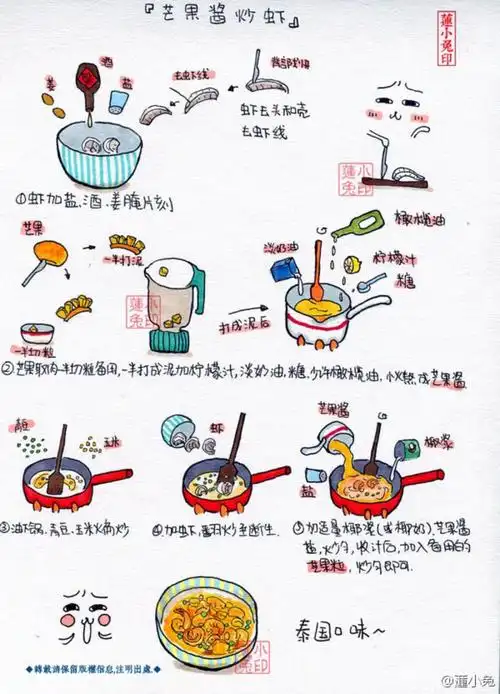 『芒果酱炒虾』
蓮小兔印
酒
姜
盐
去虾线
背部划开
虾去头和壳
去虾线
①虾加盐、酒、姜腌片刻
蓮小兔印
芒果
一半打泥
一半切粒
蓮小兔印
打成泥后
淡奶油
橄榄油
柠檬汁
糖
②芒果取肉一半切粒备用,一半打成泥加柠檬汁,淡奶油,糖,少许橄榄油,小火熬成芒果酱
青豆
玉米
虾
芒果酱
椰浆
盐
③油热锅,青豆、玉米火角炒
④加虾,翻炒至断生.
⑤加适量椰浆(或椰奶)、芒果酱
盐,炒匀,收汁后,加入备用的
芒果粒,炒匀即可.
蓮小兔印
泰国口味~
◆轉載請保留版權信息,注明出處◆
@蓮小兔